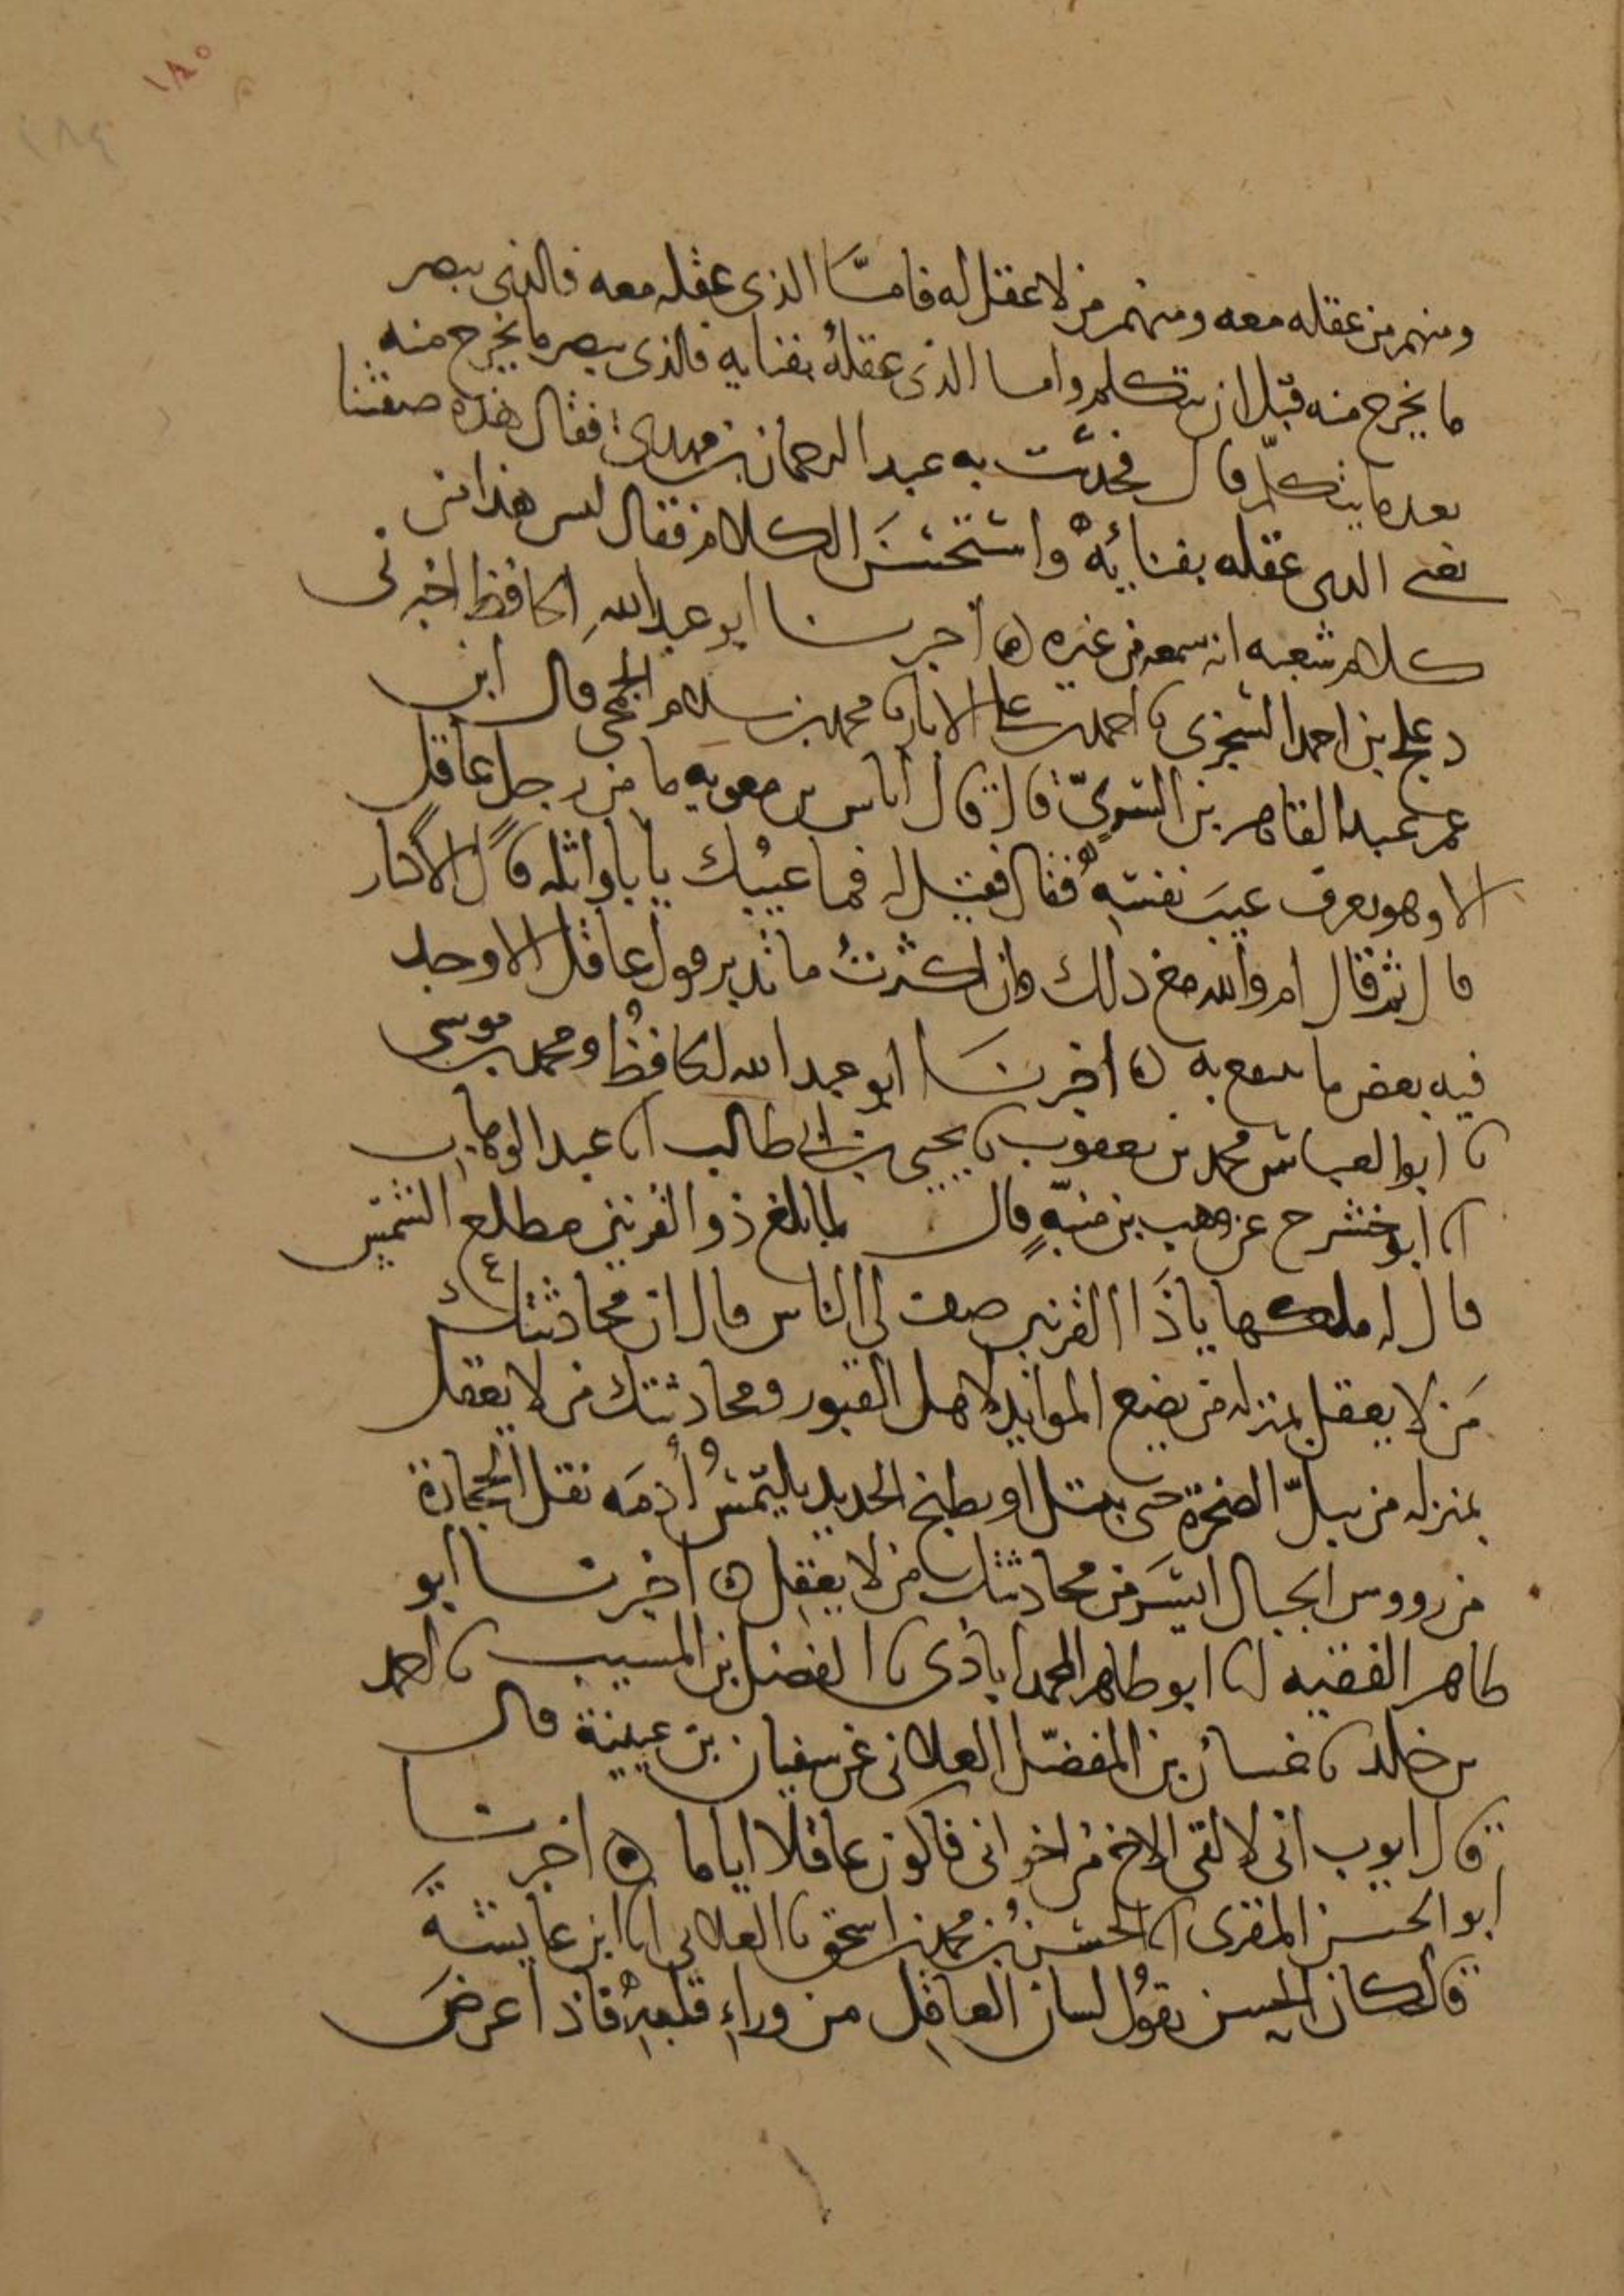 ١٨٥
١٨٤
ومنهم من عقله معه ومنهم من لا عقل له فامّا الذى عقله معه فالذى يبصر
ما يخرج منه قبل ان يتكلم واما الذى عقلهُ بفنايه فالذى يبصر ما يخرج منه
بعد ما يتكلّم قال فحدثت به عبد الرحمان بن مهدى فقال هذه صفتنا
يعنى الذى عقله بفنائِهِ واستحسَن الكلام فقال ليس هذا من
كلام شعبه انه سمعه من غيره ه اخبرنا ابو عبد اللهِ الحافظ اخبرنى
دعلج بن احمد السجزى نا احمد بن على الابار نا محمد بن سلام الجمحى قال اخبرنى
عمى عبد القاهر بن السرىّ قال قال اياس بن معويه ما من رجل عاقل
الا وهو يعرف عيبَ نفسِهِ فقال فقيل له فما عيبُك يا با واثله قال الاكثار
قال ثم قال ام والله مع ذلك وان اكثرتُ ما تدبر قول عاقل الا وجد
فيه بعض ما ينتفع به ه اخبرنَا ابو عبد الله الحافظُ ومحمد بن موسى
نا ابو العباس محمد بن يعقوب نا يحيى بن ابى طالب انا عبد الوهاب
انا ابو خشرح عن وهب بن منبّهٍ قال لما بلغ ذو القرنين مطلع الشمس
قال له ملكها ياذَا القرنين صف لى الناس قال ان محادثتك
مَن لا يعقل بمنزله من يضع الموايد لاهل القبور ومحادثتك من لا يعقل
بمنزله من يبلّ الصخرة حتى تبتل او يطبخ الحديد يلتمسُ أُدمَه نقل الحجارة
من رووس الجبال ايسَر من محادثتك من لا يعقِل ه اخبرنا ابو
طاهر الفقيه انا ابو طاهر المحمدابادى نا الفضل بن المسيب نا احمد
بن خلد نا غسان بن المفضّل الغلابى عن سفيان بن عيينة قال
قال ايوب انى لالقى الاخ من اخوانى فاكون عاقلا اياما ه اخبرنا
ابو الحسن المقرى انا الحسنُ بن محمد بن اسحق نا الغلابى نا ابن عايشةَ
قال كان الحسن يقولُ لسان العاقِل من وراءِ قلبِهِ فاذا عرضَ